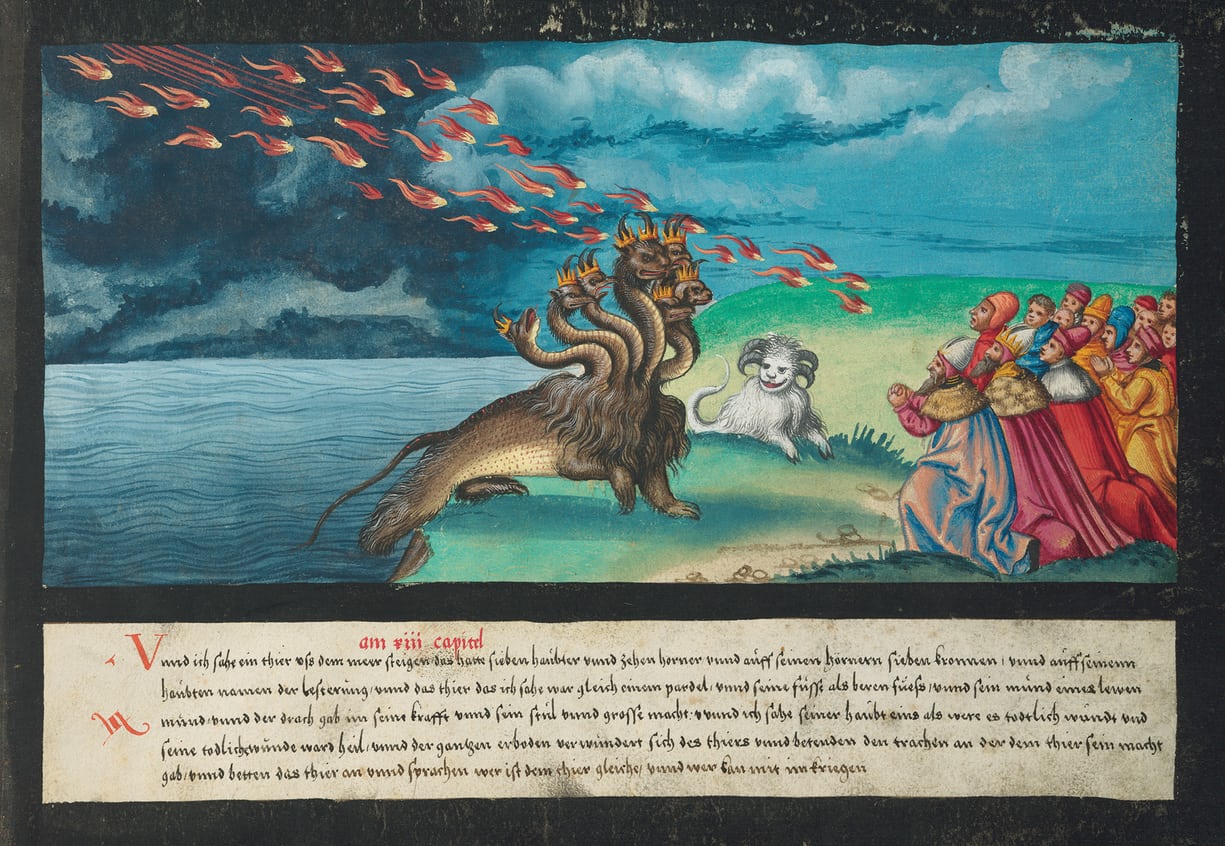 am xiii capitel
Vnnd ich sahe ein thier vss dem meer steigen das hatte sieben haübter vnnd zehen horner vnnd aüff seinen hörnern sieben kronnen / vnnd aüff seinenn
haübten namen der lesterüng / vnnd das thier das ich sahe war gleich einem pardel / vnnd seine füsse als beren füess / vnnd sein münd eines lewen
münd / vnnd der drach gab im seine krafft vnnd sein stül vnnd grosse macht / vnnd ich sahe seiner haübt eins als were es todtlich wündt vnd
seine todliche wünde ward heil / vnnd der gantzen erboden verwündert sich des thiers vnnd betenden den trachen an der dem thier sein macht
gab / vnnd betten das thier an vnnd sprachen wer ist dem thier gleiche / vnnd wer kan mit im kriegen